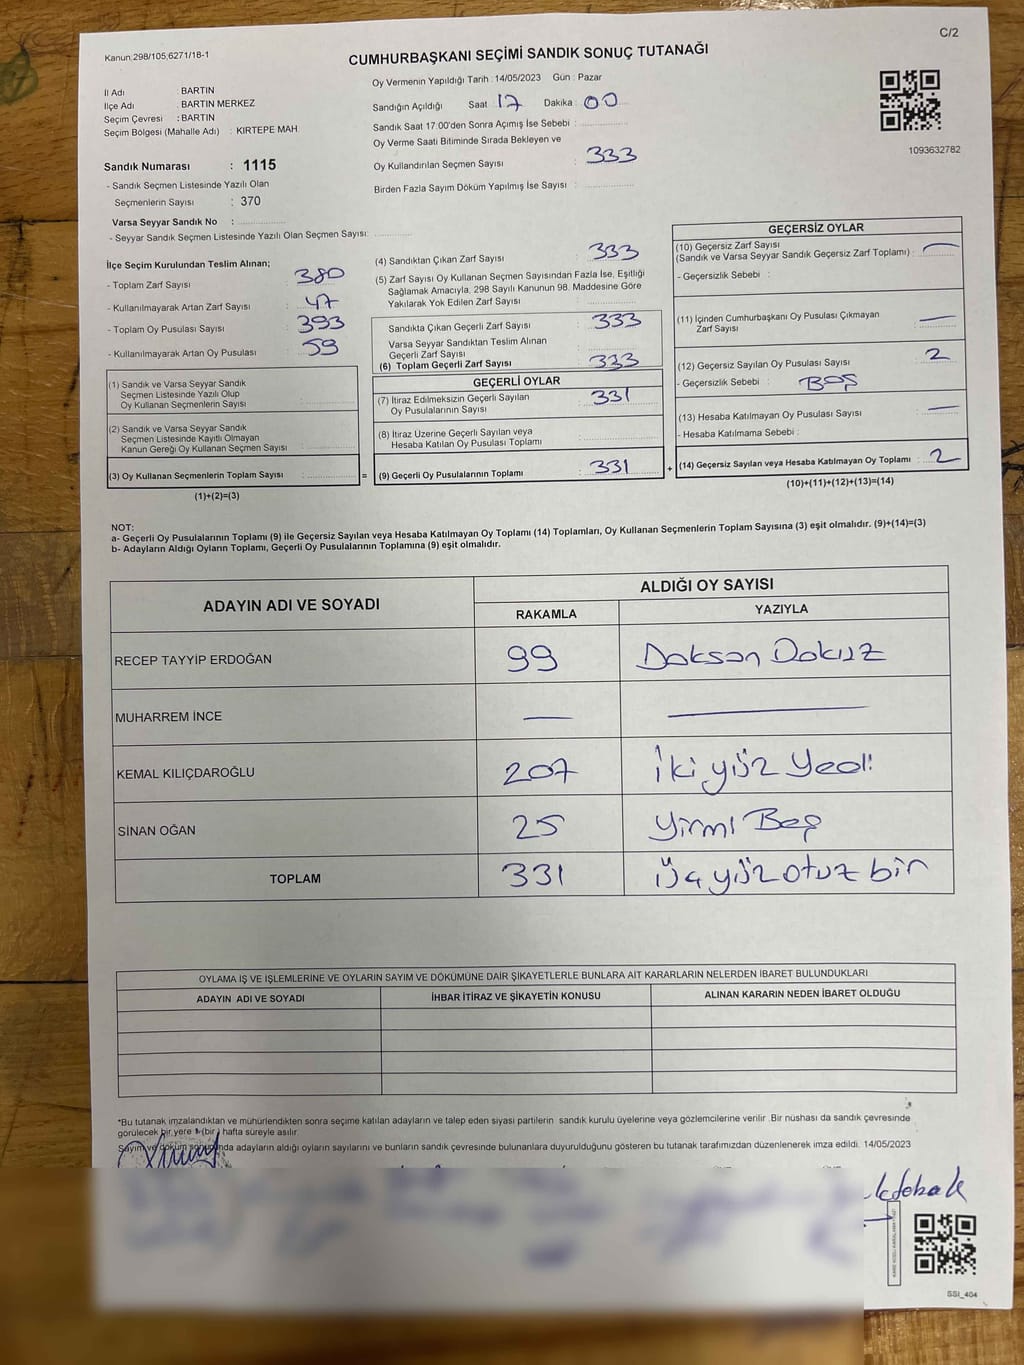 Kanun:298/105,6271/18-1
C/2
CUMHURBAŞKANI SEÇİMİ SANDIK SONUÇ TUTANAĞI
Oy Vermenin Yapıldığı Tarih : 14/05/2023 Gün : Pazar
İl Adı : BARTIN
İlçe Adı : BARTIN MERKEZ
Seçim Çevresi : BARTIN
Seçim Bölgesi (Mahalle Adı) : KIRTEPE MAH
Sandık Numarası : 1115
- Sandık Seçmen Listesinde Yazılı Olan
Seçmenlerin Sayısı : 370
Varsa Seyyar Sandık No :
- Seyyar Sandık Seçmen Listesinde Yazılı Olan Seçmen Sayısı:
Sandığın Açıldığı Saat 17 Dakika : 00
Sandık Saat 17.00'den Sonra Açımış İse Sebebi :
Oy Verme Saati Bitiminde Sırada Bekleyen ve
Oy Kullandırılan Seçmen Sayısı : 333
Birden Fazla Sayım Döküm Yapılmış İse Sayısı :
1093632782
İlçe Seçim Kurulundan Teslim Alınan;
- Toplam Zarf Sayısı : 380
- Kullanılmayarak Artan Zarf Sayısı : 47
- Toplam Oy Pusulası Sayısı : 393
- Kullanılmayarak Artan Oy Pusulası : 59
(1) Sandık ve Varsa Seyyar Sandık
Seçmen Listesinde Yazılı Olup
Oy Kullanan Seçmenlerin Sayısı :
(2) Sandık ve Varsa Seyyar Sandık
Seçmen Listesinde Kayıtlı Olmayan
Kanun Gereği Oy Kullanan Seçmen Sayısı :
(3) Oy Kullanan Seçmenlerin Toplam Sayısı : =
(1)+(2)=(3)
(4) Sandıktan Çıkan Zarf Sayısı : 333
(5) Zarf Sayısı Oy Kullanan Seçmen Sayısından Fazla İse, Eşitliği
Sağlamak Amacıyla, 298 Sayılı Kanunun 98. Maddesine Göre
Yakılarak Yok Edilen Zarf Sayısı :
Sandıkta Çıkan Geçerli Zarf Sayısı : 333
Varsa Seyyar Sandıktan Teslim Alınan
Geçerli Zarf Sayısı :
(6) Toplam Geçerli Zarf Sayısı : 333
GEÇERLİ OYLAR
(7) İtiraz Edilmeksizin Geçerli Sayılan
Oy Pusulalarının Sayısı : 331
(8) İtiraz Üzerine Geçerli Sayılan veya
Hesaba Katılan Oy Pusulası Toplamı :
(9) Geçerli Oy Pusulalarının Toplamı : 331 +
GEÇERSİZ OYLAR
(10) Geçersiz Zarf Sayısı
(Sandık ve Varsa Seyyar Sandık Geçersiz Zarf Toplamı) : —
- Geçersizlik Sebebi :
(11) İçinden Cumhurbaşkanı Oy Pusulası Çıkmayan
Zarf Sayısı : —
(12) Geçersiz Sayılan Oy Pusulası Sayısı : 2
- Geçersizlik Sebebi : BOŞ
(13) Hesaba Katılmayan Oy Pusulası Sayısı : —
- Hesaba Katılmama Sebebi :
(14) Geçersiz Sayılan veya Hesaba Katılmayan Oy Toplamı : 2
(10)+(11)+(12)+(13)=(14)
NOT:
a- Geçerli Oy Pusulalarının Toplamı (9) ile Geçersiz Sayılan veya Hesaba Katılmayan Oy Toplamı (14) Toplamları, Oy Kullanan Seçmenlerin Toplam Sayısına (3) eşit olmalıdır. (9)+(14)=(3)
b- Adayların Aldığı Oyların Toplamı, Geçerli Oy Pusulalarının Toplamına (9) eşit olmalıdır.
ADAYIN ADI VE SOYADI
ALDIĞI OY SAYISI
RAKAMLA YAZIYLA
RECEP TAYYİP ERDOĞAN 99 Doksan Dokuz
MUHARREM İNCE — —
KEMAL KILIÇDAROĞLU 207 İki yüz Yedi
SİNAN OĞAN 25 Yirmi Beş
TOPLAM 331 üç yüz otuz bir
OYLAMA İŞ VE İŞLEMLERİNE VE OYLARIN SAYIM VE DÖKÜMÜNE DAİR ŞİKAYETLERLE BUNLARA AİT KARARLARIN NELERDEN İBARET BULUNDUKLARI
ADAYIN ADI VE SOYADI İHBAR İTİRAZ VE ŞİKAYETİN KONUSU ALINAN KARARIN NEDEN İBARET OLDUĞU
*Bu tutanak imzalandıktan ve mühürlendikten sonra seçime katılan adayların ve talep eden siyasi partilerin sandık kurulu üyelerine veya gözlemcilerine verilir .Bir nüshası da sandık çevresinde
görülecek bir yere 1 (bir) hafta süreyle asılır.
Sayım ve döküm adayların aldığı oyların sayılarını ve bunların sandık çevresinde bulunanlara duyurulduğunu gösteren bu tutanak tarafımızdan düzenlenerek imza edildi. 14/05/2023
SSI_404